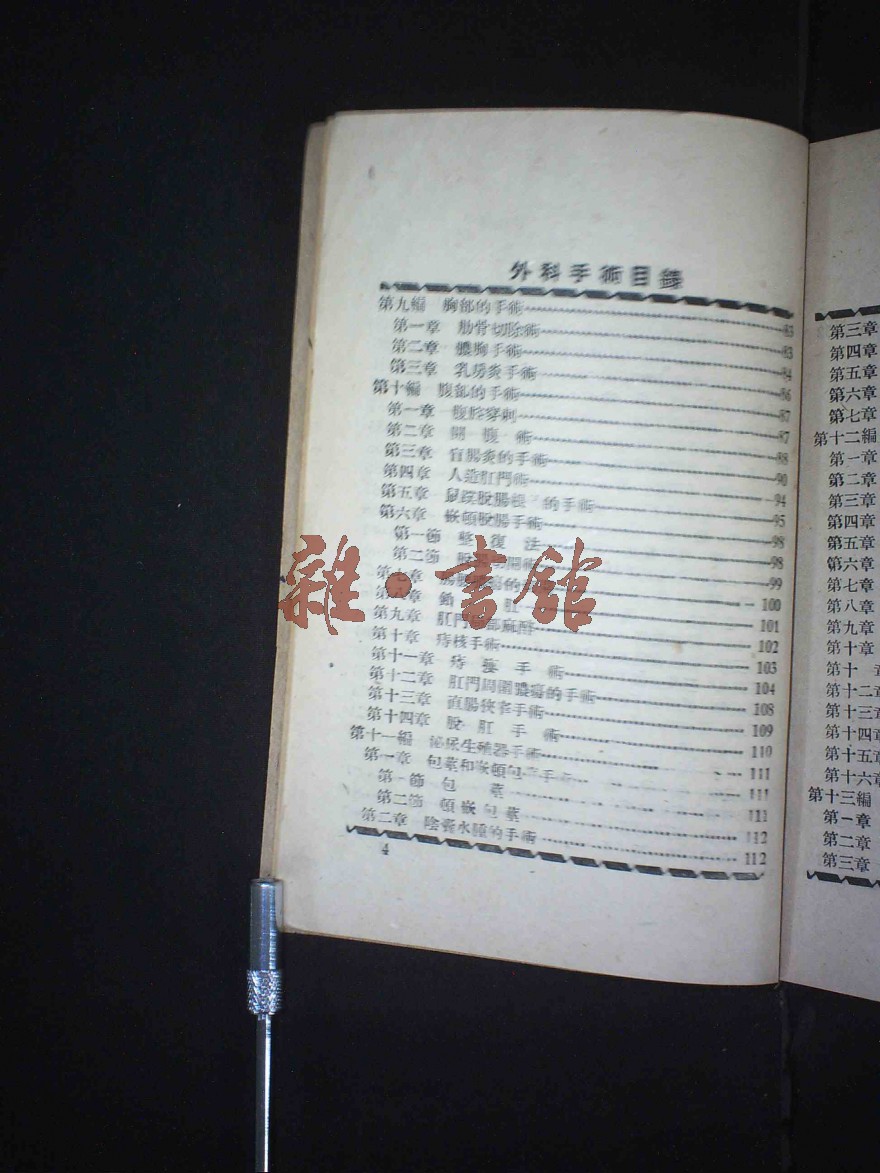 外科手術目錄
第九編 胸部的手術 83
第一章 肋骨切除術 83
第二章 膿胸手術 84
第三章 乳房炎手術 86
第十編 腹部的手術 87
第一章 腹腔穿刺 87
第二章 開腹術 88
第三章 盲腸炎的手術 90
第四章 人造肛門術 94
第五章 鼠蹊脫腸根 的手術 95
第六章 嵌頓脫腸手術 98
第一節 整復法 98
第二節 99
第七章 100
第八章 肛 101
第九章 肛門 部麻醉 102
第十章 痔核手術 103
第十一章 痔瘻手術 104
第十二章 肛門周圍膿瘍的手術 108
第十三章 直腸狹窄手術 109
第十四章 脫肛手術 110
第十一編 泌尿生殖器手術 111
第一章 包莖和嵌頓包 手 111
第一節 包莖 111
第二節 頓嵌包莖 112
第二章 陰囊水腫的手術 112
4
雜·書館
第三章
第四章
第五章
第六章
第七章
第十二編
第一章
第二章
第三章
第四章
第五章
第六章
第七章
第八章
第九章
第十章
第十
第十二
第十三
第十四
第十五
第十六
第十三編
第一章
第二章
第三章